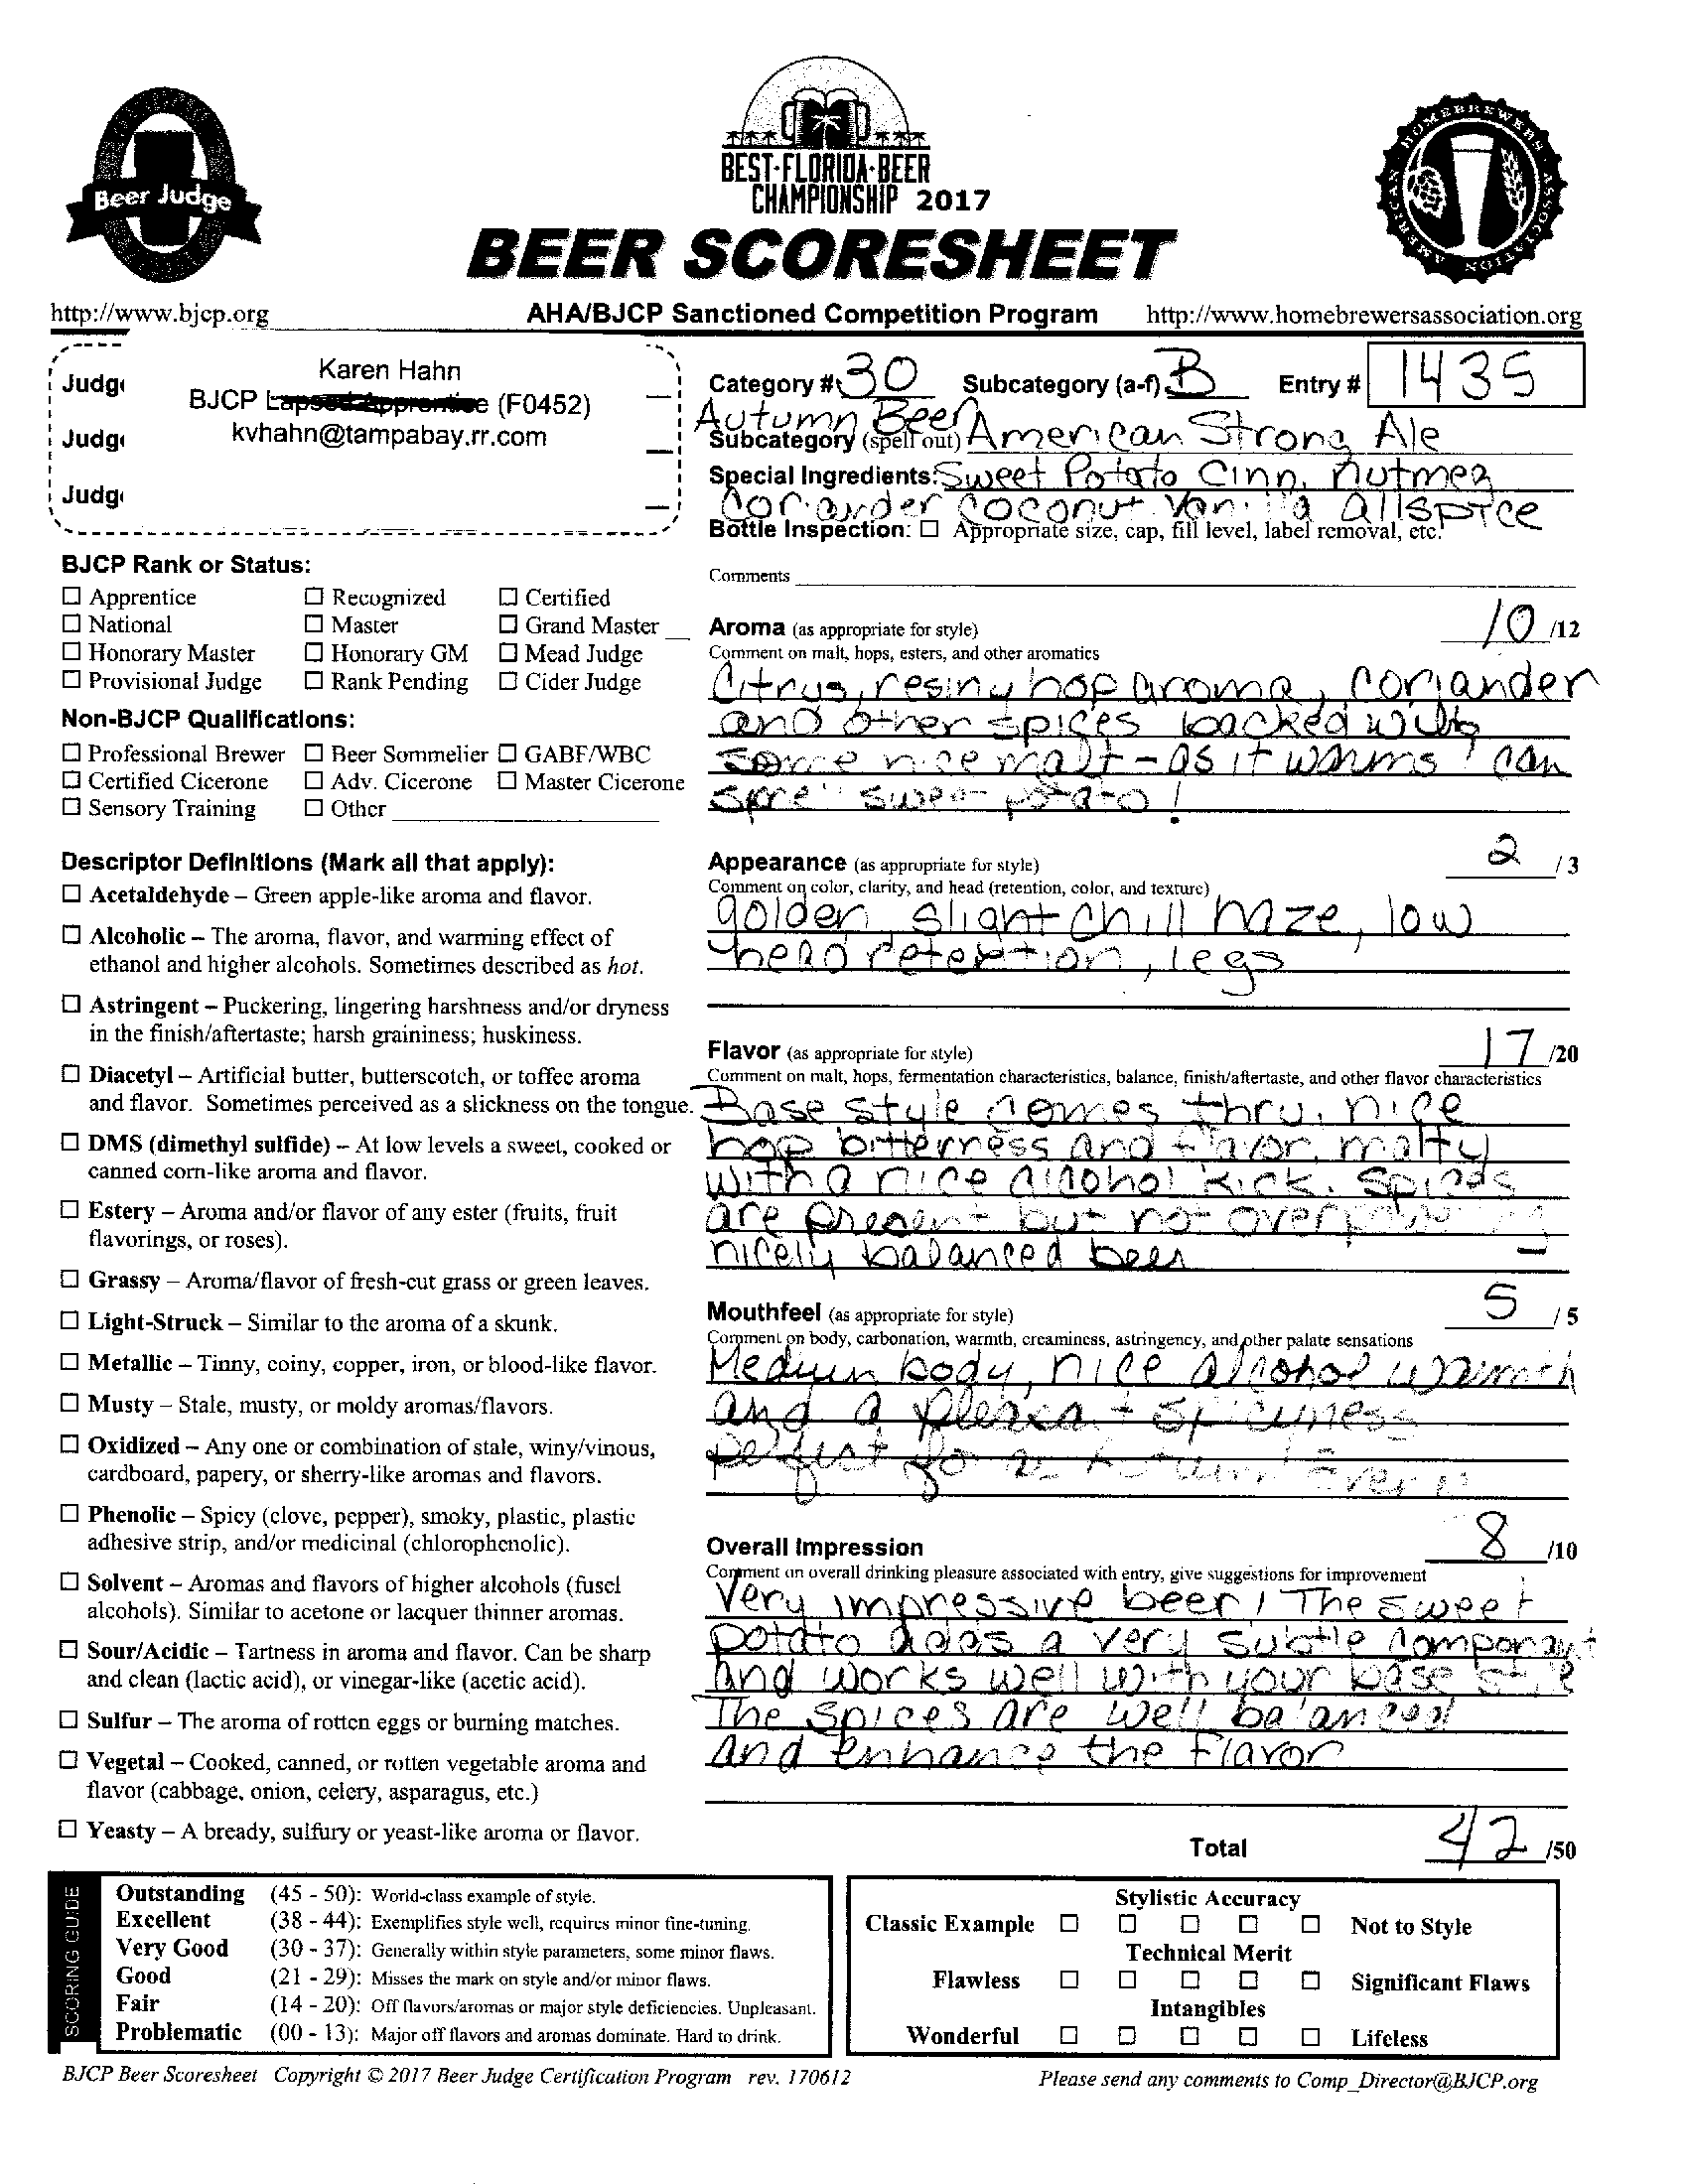 BEST·FLORIDA·BEER
CHAMPIONSHIP 2017
Beer Judge
AMERICAN HOMEBREWERS ASSOCIATION
BEER SCORESHEET
http://www.bjcp.org AHA/BJCP Sanctioned Competition Program http://www.homebrewersassociation.org
Judg
Judg
Judg
Karen Hahn
BJCP Lapsed Apprentice (F0452)
kvhahn@tampabay.rr.com
Category # 30 Subcategory (a-f) B Entry # 1435
Autumn Beer
Subcategory (spell out) American Strong Ale
Special Ingredients: Sweet Potato Cinn, nutmeg
Coriander Coconut Vanilla allspice
Bottle Inspection: ☐ Appropriate size, cap, fill level, label removal, etc.
Comments
BJCP Rank or Status:
☐ Apprentice ☐ Recognized ☐ Certified
☐ National ☐ Master ☐ Grand Master __
☐ Honorary Master ☐ Honorary GM ☐ Mead Judge
☐ Provisional Judge ☐ Rank Pending ☐ Cider Judge
Non-BJCP Qualifications:
☐ Professional Brewer ☐ Beer Sommelier ☐ GABF/WBC
☐ Certified Cicerone ☐ Adv. Cicerone ☐ Master Cicerone
☐ Sensory Training ☐ Other
Descriptor Definitions (Mark all that apply):
☐ Acetaldehyde – Green apple-like aroma and flavor.
☐ Alcoholic – The aroma, flavor, and warming effect of
ethanol and higher alcohols. Sometimes described as hot.
☐ Astringent – Puckering, lingering harshness and/or dryness
in the finish/aftertaste; harsh graininess; huskiness.
☐ Diacetyl – Artificial butter, butterscotch, or toffee aroma
and flavor. Sometimes perceived as a slickness on the tongue.
☐ DMS (dimethyl sulfide) – At low levels a sweet, cooked or
canned corn-like aroma and flavor.
☐ Estery – Aroma and/or flavor of any ester (fruits, fruit
flavorings, or roses).
☐ Grassy – Aroma/flavor of fresh-cut grass or green leaves.
☐ Light-Struck – Similar to the aroma of a skunk.
☐ Metallic – Tinny, coiny, copper, iron, or blood-like flavor.
☐ Musty – Stale, musty, or moldy aromas/flavors.
☐ Oxidized – Any one or combination of stale, winy/vinous,
cardboard, papery, or sherry-like aromas and flavors.
☐ Phenolic – Spicy (clove, pepper), smoky, plastic, plastic
adhesive strip, and/or medicinal (chlorophenolic).
☐ Solvent – Aromas and flavors of higher alcohols (fusel
alcohols). Similar to acetone or lacquer thinner aromas.
☐ Sour/Acidic – Tartness in aroma and flavor. Can be sharp
and clean (lactic acid), or vinegar-like (acetic acid).
☐ Sulfur – The aroma of rotten eggs or burning matches.
☐ Vegetal – Cooked, canned, or rotten vegetable aroma and
flavor (cabbage, onion, celery, asparagus, etc.)
☐ Yeasty – A bready, sulfury or yeast-like aroma or flavor.
Aroma (as appropriate for style) 10 /12
Comment on malt, hops, esters, and other aromatics
Citrus, resiny hop aroma, coriander
and other spices backed with
some nice malt - as it warms I can
sweet potato!
Appearance (as appropriate for style) 2 / 3
Comment on color, clarity, and head (retention, color, and texture)
golden, slight chill haze, low
head retention, legs
Flavor (as appropriate for style) 17 /20
Comment on malt, hops, fermentation characteristics, balance, finish/aftertaste, and other flavor characteristics
Base style comes thru, nice
hop bitterness and flavor, malty
with a nice alcohol kick. Spices
are present but not overpowering
nicely balanced beer
Mouthfeel (as appropriate for style) 5 / 5
Comment on body, carbonation, warmth, creaminess, astringency, and other palate sensations
Medium body, nice alcohol warmth
and a pleasant spicyness
perfect for
Overall Impression 8 /10
Comment on overall drinking pleasure associated with entry, give suggestions for improvement
Very impressive beer! The sweet
potato adds a very subtle componant
and works well with your base style
The spices are well balanced
and enhance the flavor
Total 42 /50
SCORING GUIDE
Outstanding (45 - 50): World-class example of style.
Excellent (38 - 44): Exemplifies style well, requires minor fine-tuning.
Very Good (30 - 37): Generally within style parameters, some minor flaws.
Good (21 - 29): Misses the mark on style and/or minor flaws.
Fair (14 - 20): Off flavors/aromas or major style deficiencies. Unpleasant.
Problematic (00 - 13): Major off flavors and aromas dominate. Hard to drink.
Stylistic Accuracy
Classic Example ☐ ☐ ☐ ☐ ☐ Not to Style
Technical Merit
Flawless ☐ ☐ ☐ ☐ ☐ Significant Flaws
Intangibles
Wonderful ☐ ☐ ☐ ☐ ☐ Lifeless
BJCP Beer Scoresheet Copyright © 2017 Beer Judge Certification Program rev. 170612 Please send any comments to Comp_Director@BJCP.org